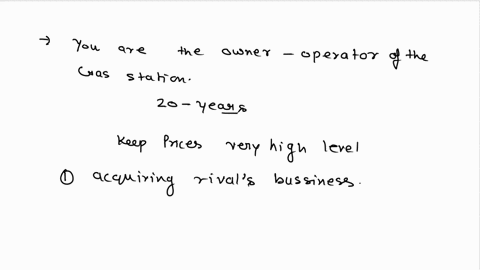 → You are the owner - operator of the
Gas station.
20 - years
Keep Prices very high level
① acquiring rival's bussiness.